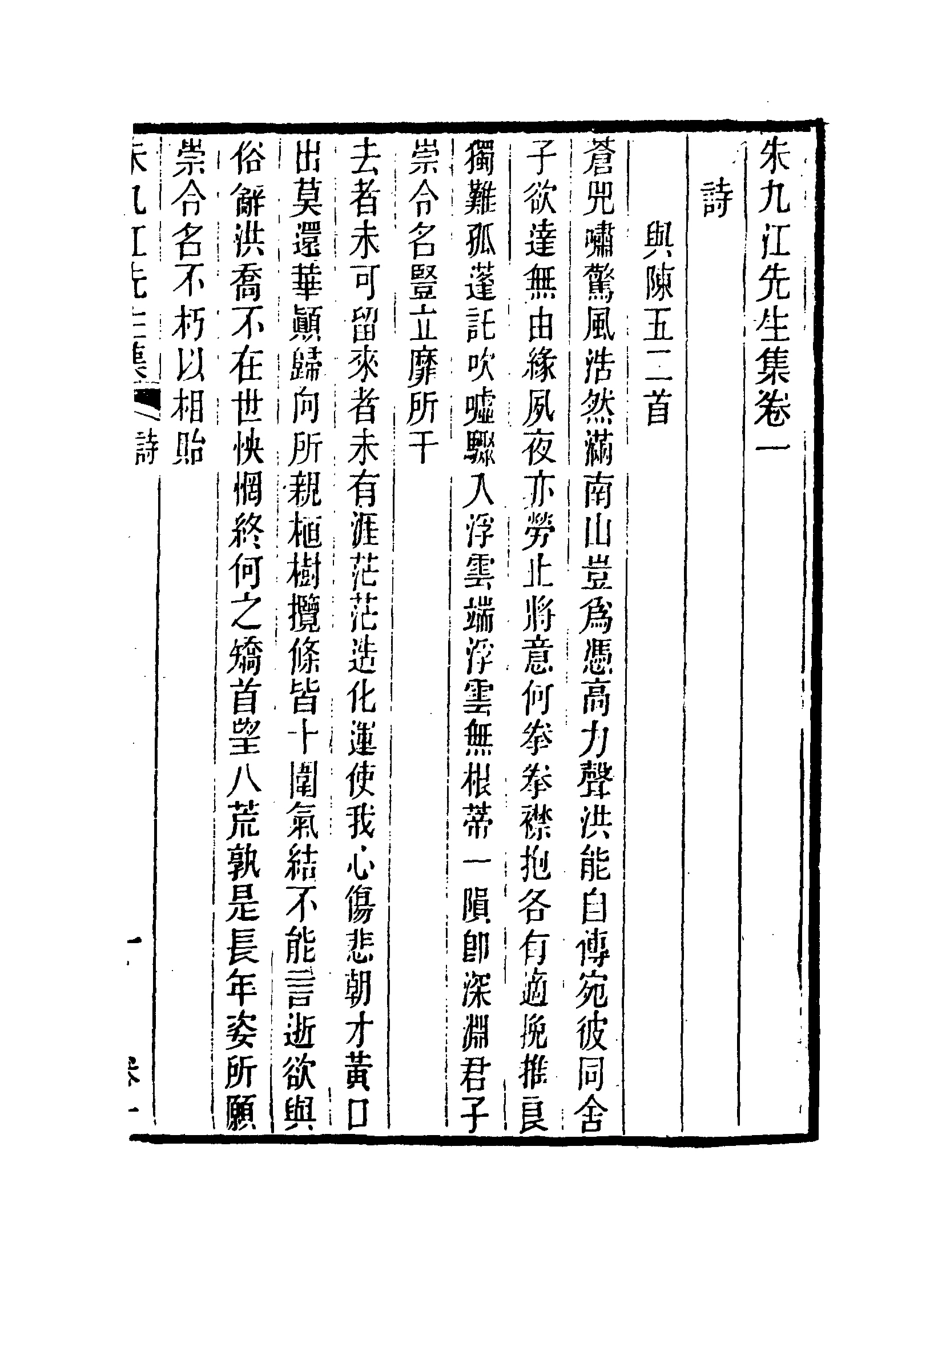 朱九江先生集卷一
詩
與陳五二首
蒼兕嘯驚風浩然滿南山豈爲憑高力聲洪能自傳宛彼同舍
子欲達無由緣夙夜亦勞止將意何拳拳襟抱各有適挽推良
獨難孤蓬託吹噓驟入浮雲端浮雲無根蒂一隕卽深淵君子
崇令名豎立靡所干
去者未可留來者未有涯茫茫造化運使我心傷悲朝才黃口
出莫還華顚歸向所親植樹攬條皆十圍氣結不能言逝欲與
俗辭洪喬不在世怏惘終何之矯首望八荒孰是長年姿所願
崇令名不朽以相貽
朱九江先生集 詩 一 卷一